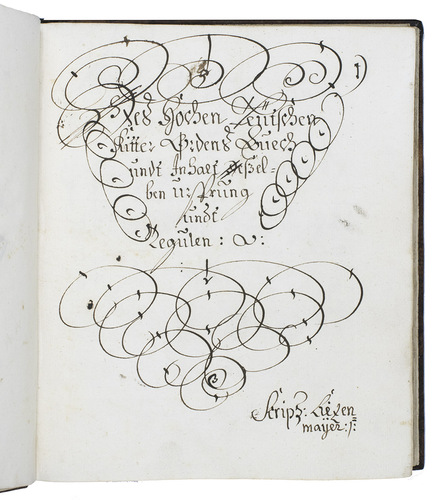 Des Hochen Teütschen
Ritter Ordens Buech
undt Inhalt desßel=
ben ursprung
undt
Regulen : &:
Script: Liexen=
mayer :/: